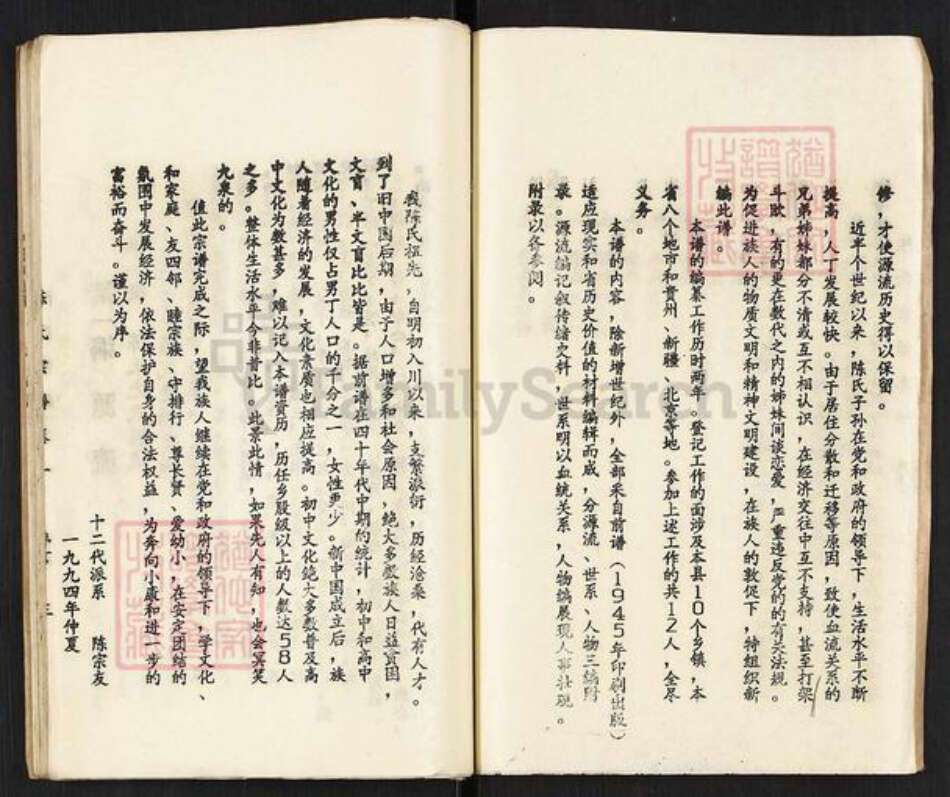 修，才使源流历史得以保留。
近半个世纪以来，陈氏子孙在党和政府的领导下，生活水平不断
提高，人丁发展较快。由于居住分散和迁移等原因，致使血流关系的
兄弟姊妹都分不清或互不相认识，在经济交往中互不支持，甚至打架
斗欧，有的更在数代之内的姊妹间谈恋爱，严重违反党的的有关法规。
为促进族人的物质文明和精神文明建设，在族人的敦促下，特组织新
编此谱。
本谱的编纂工作历时两年。登记工作的面涉及本县10个乡镇，本
省八个地市和贵州、新疆、北京等地。参加上述工作的共12人，全尽
义务。
本谱的内容，除新增世纪外，全部采自前谱（1945年印刷出版）
适应现实和省历史价值的材料编辑而成，分源流、世系、人物三编附
录。源流编记叙传绪史料，世系明以血统关系，人物编展现人事壮观。
附录以备参阅。
我陈氏祖先，自明初入川以来，支繁派衍，历经沧桑，代有人才。
到了旧中国后期，由于人口增多和社会原因，绝大多数族人日益贫困，
文盲、半文盲比比皆是。据前谱在四十年代中期的统计，初中和高中
文化的男性仅占男丁人口的千分之一，女性更少。新中国成立后，族
人随着经济的发展，文化素质也相应提高。初中文化绝大多数普及高
中文化为数甚多，难以记入本谱资历，历任乡股级以上的人数达58人
之多。整体生活水平今非昔比。此景此情，如果先人有知，也会冥笑
九泉的。
值此宗谱完成之际，望我族人继续在党和政府的领导下，学文化、
和家庭、友四邻、睦宗族、守排行、尊长贤、爱幼小，在安定团结的
氛围中发展经济，依法保护自身的合法权益，为奔向小康和进一步的
富裕而奋斗。谨以为序。
十二代派系 陈宗友
一九九四年仲夏
FamilySearch